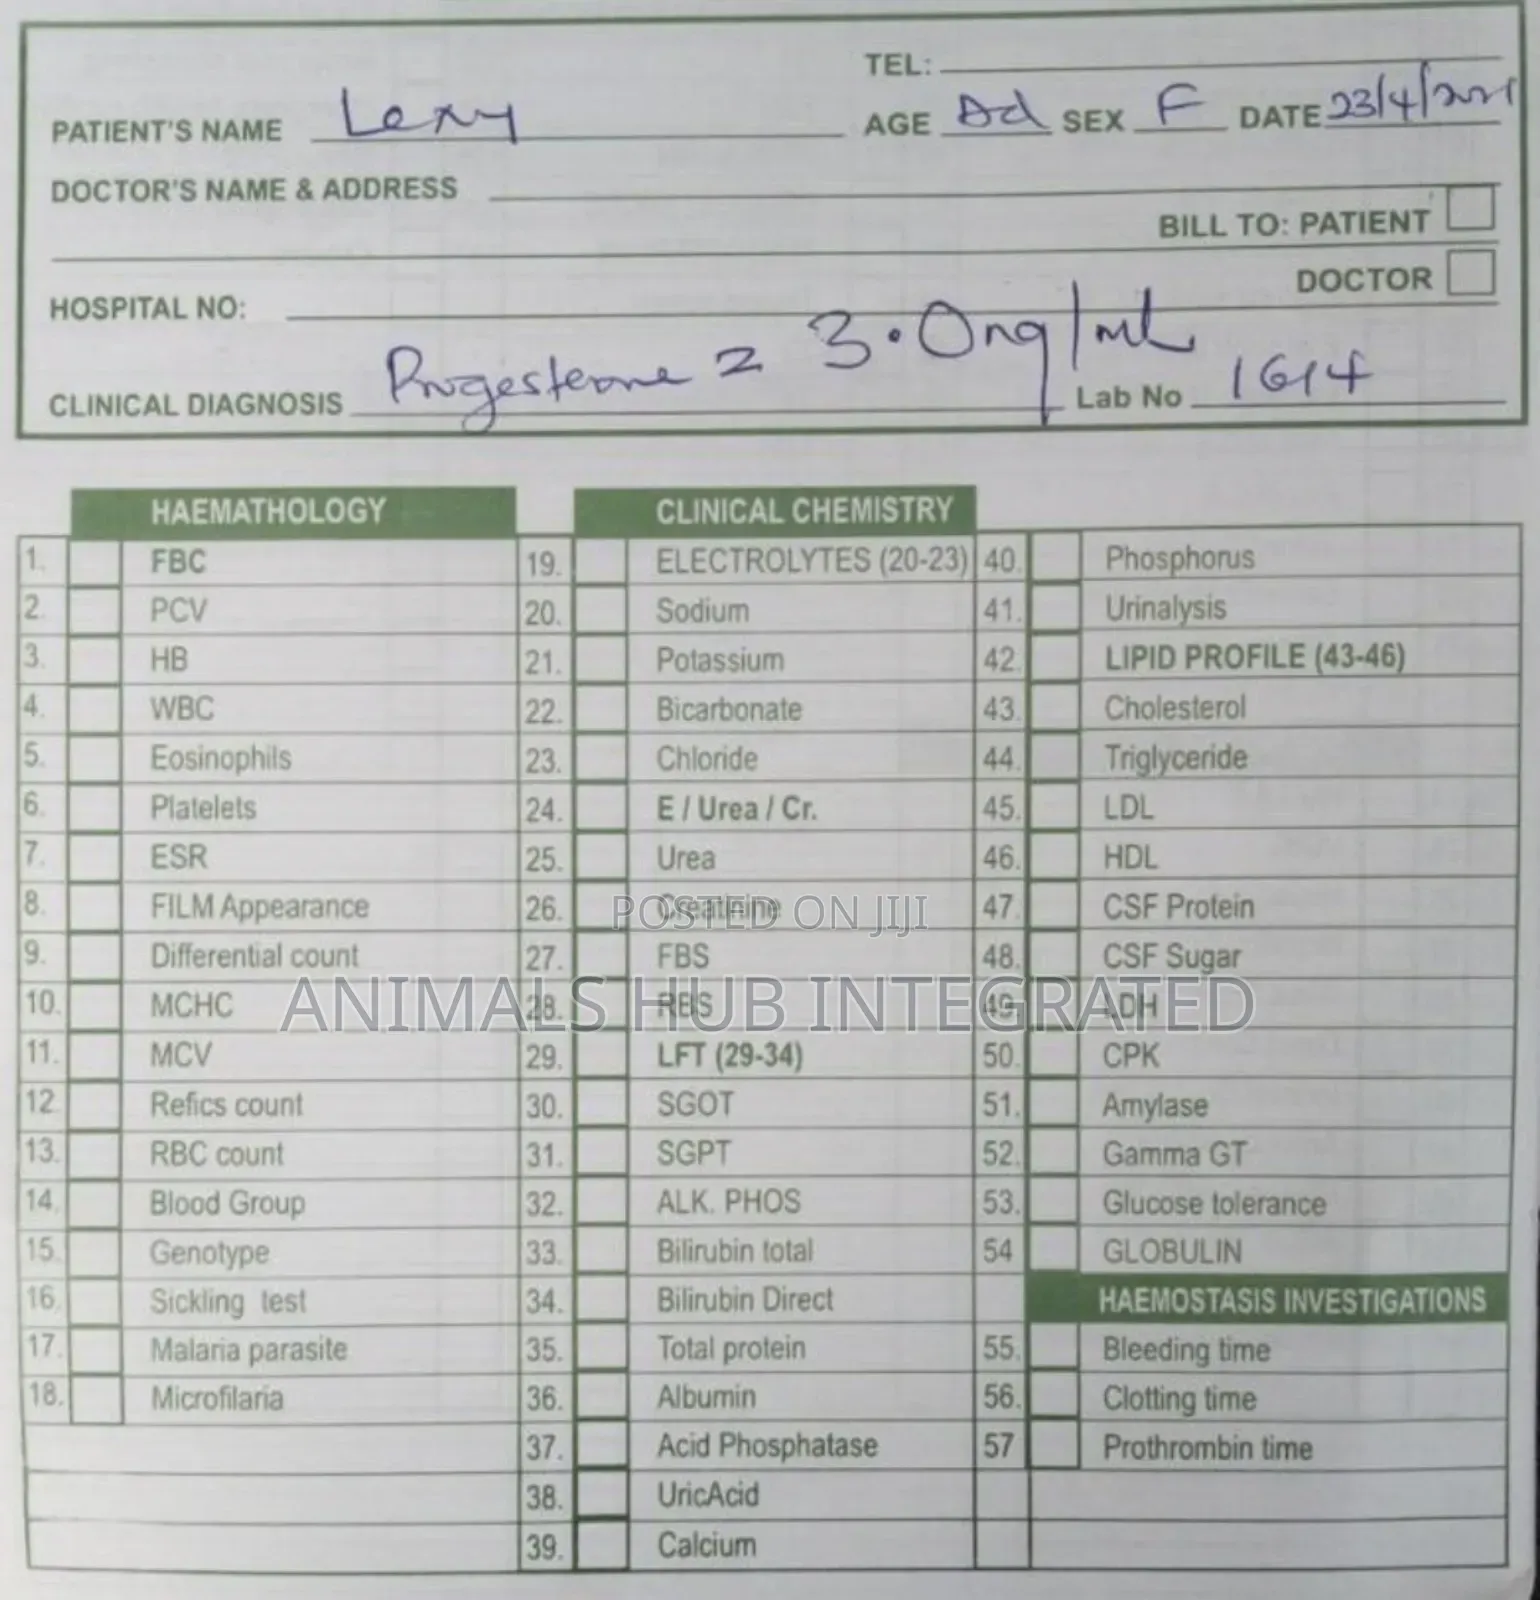 TEL:
PATIENT'S NAME Lexy AGE Ad SEX F DATE 23/4/2021
DOCTOR'S NAME & ADDRESS
BILL TO: PATIENT
DOCTOR
HOSPITAL NO:
CLINICAL DIAGNOSIS Progesterone = 3.0ng/mL Lab No 1614
HAEMATHOLOGY
1. FBC
2. PCV
3. HB
4. WBC
5. Eosinophils
6. Platelets
7. ESR
8. FILM Appearance
9. Differential count
10. MCHC
11. MCV
12. Refics count
13. RBC count
14. Blood Group
15. Genotype
16. Sickling test
17. Malaria parasite
18. Microfilaria
CLINICAL CHEMISTRY
19. ELECTROLYTES (20-23)
20. Sodium
21. Potassium
22. Bicarbonate
23. Chloride
24. E / Urea / Cr.
25. Urea
26. Creatinine
27. FBS
28. RBS
29. LFT (29-34)
30. SGOT
31. SGPT
32. ALK. PHOS
33. Bilirubin total
34. Bilirubin Direct
35. Total protein
36. Albumin
37. Acid Phosphatase
38. UricAcid
39. Calcium
40. Phosphorus
41. Urinalysis
42. LIPID PROFILE (43-46)
43. Cholesterol
44. Triglyceride
45. LDL
46. HDL
47. CSF Protein
48. CSF Sugar
49. LDH
50. CPK
51. Amylase
52. Gamma GT
53. Glucose tolerance
54 GLOBULIN
HAEMOSTASIS INVESTIGATIONS
55. Bleeding time
56. Clotting time
57 Prothrombin time
POSTED ON JIJI
ANIMALS HUB INTEGRATED